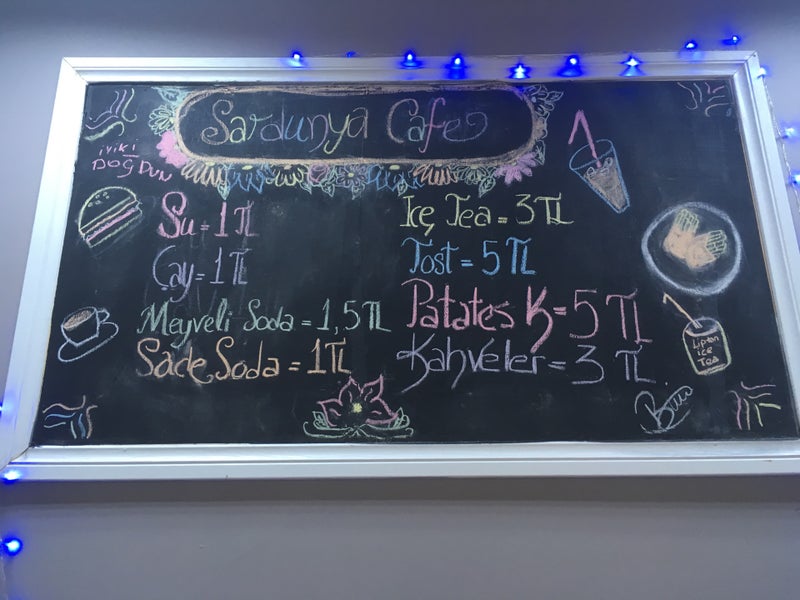 Sardunya Cafe
iyiki
DoğDun
Su = 1 TL
Çay = 1 TL
Meyveli Soda = 1,5 TL
Sade Soda = 1 TL
Içe Tea = 3 TL
Tost = 5 TL
Patates K = 5 TL
Kahveler = 3 TL
Lipton
ice
Tea